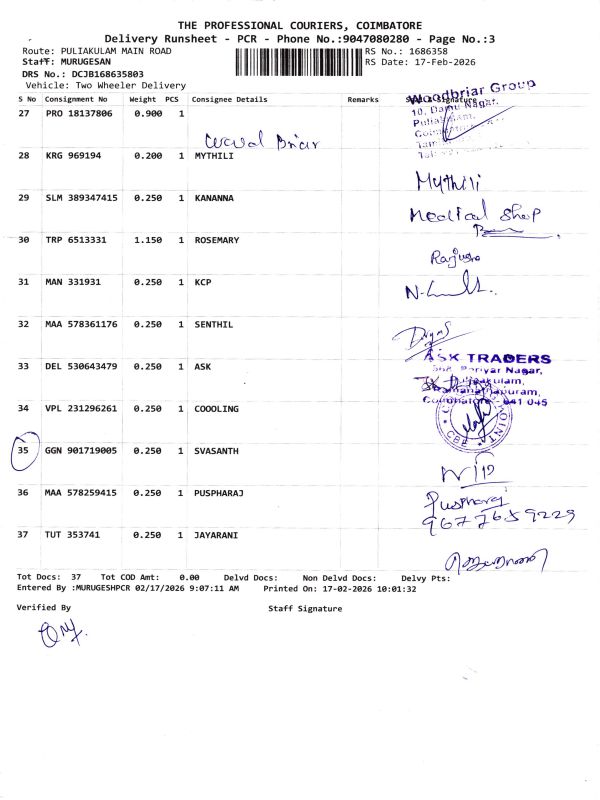 THE PROFESSIONAL COURIERS, COIMBATORE
Delivery Runsheet - PCR - Phone No.:9047080280 - Page No.:3
Route: PULIAKULAM MAIN ROAD RS No.: 1686358
Staff: MURUGESAN RS Date: 17-Feb-2026
DRS No.: DCJB168635803
Vehicle: Two Wheeler Delivery
S No Consignment No Weight PCS Consignee Details Remarks Signature
Woodbriar Group
10, Damu Nagar,
27 PRO 18137806 0.900 1
28 KRG 969194 0.200 1 MYTHILI
Mythili
29 SLM 389347415 0.250 1 KANANNA
Medical Shop
30 TRP 6513331 1.150 1 ROSEMARY
31 MAN 331931 0.250 1 KCP
32 MAA 578361176 0.250 1 SENTHIL
ASK TRADERS
33 DEL 530643479 0.250 1 ASK
Nagar,
Puliakulam,
Coimbatore - 641 045
34 VPL 231296261 0.250 1 COOOLING
35 GGN 901719005 0.250 1 SVASANTH
36 MAA 578259415 0.250 1 PUSPHARAJ
Puspharaj
9677659229
37 TUT 353741 0.250 1 JAYARANI
Tot Docs: 37 Tot COD Amt: 0.00 Delvd Docs: Non Delvd Docs: Delvy Pts:
Entered By :MURUGESHPCR 02/17/2026 9:07:11 AM Printed On: 17-02-2026 10:01:32
Verified By Staff Signature